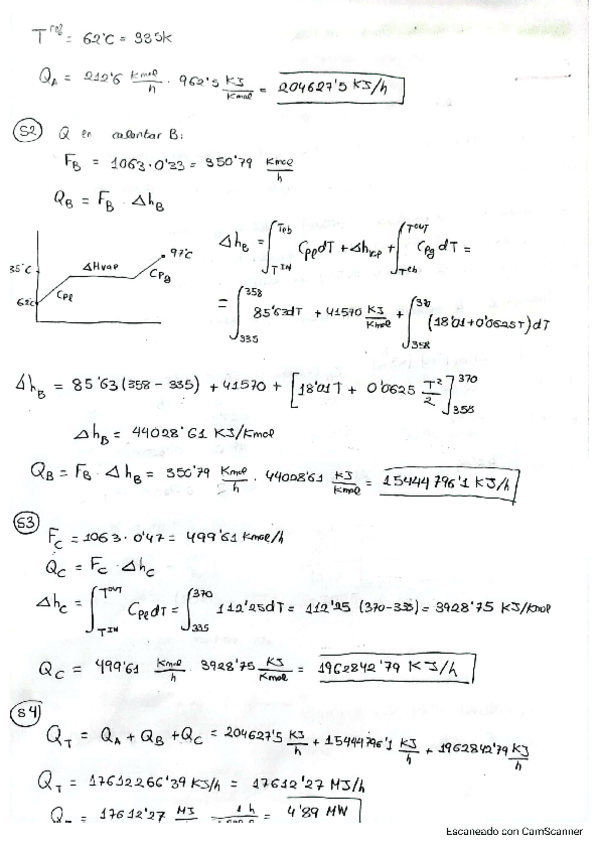 T^ref = 62°C = 335K
Q_A = 212'6 Kmol/h · 962'5 KJ/Kmol = 204627'5 KJ/h
S2 Q en calentar B:
F_B = 1063 · 0'33 = 350'79 Kmol/h
Q_B = F_B · Δh_B
35°C 62°C Cpl ΔHvap Cpg 97°C
Δh_B = ∫_{T^IN}^{Teb} Cpl dT + Δhvap + ∫_{Teb}^{T^OUT} Cpg dT =
= ∫_{335}^{358} 85'63dT + 41570 KJ/Kmol + ∫_{358}^{370} (18'01+0'0625T)dT
Δh_B = 85'63(358 - 335) + 41570 + [18'01T + 0'0625 T²/2]_{358}^{370}
Δh_B = 44028'61 KJ/Kmol
Q_B = F_B · Δh_B = 350'79 Kmol/h · 44028'61 KJ/Kmol = 15444796'1 KJ/h
S3
F_C = 1063 · 0'47 = 499'61 Kmol/h
Q_C = F_C · Δh_C
Δh_C = ∫_{T^IN}^{T^OUT} Cpl dT = ∫_{335}^{370} 112'25dT = 112'25 (370-335) = 3928'75 KJ/Kmol
Q_C = 499'61 Kmol/h · 3928'75 KJ/Kmol = 1962842'79 KJ/h
S4
Q_T = Q_A + Q_B + Q_C = 204627'5 KJ/h + 15444796'1 KJ/h + 1962842'79 KJ/h
Q_T = 17612266'39 KJ/h = 17612'27 MJ/h
= 17612'27 MJ 1 h = 4'89 MW
Escaneado con CamScanner